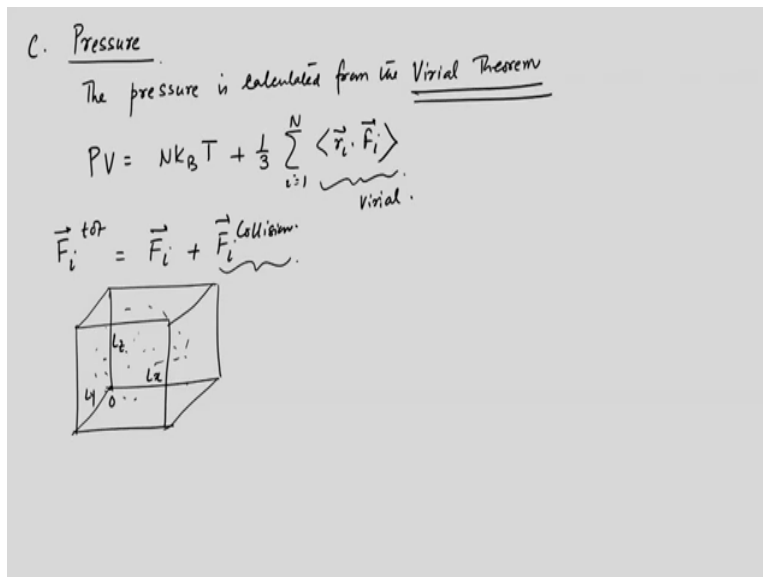 C. Pressure
The pressure is calculated from the Virial Theorem
PV = NK_BT + 1/3 Σ_{i=1}^{N} ⟨r⃗_i · F⃗_i⟩
Virial.
F⃗_i^{tot} = F⃗_i + F⃗_i^{Collision}.
Lz
Lx
Ly
O